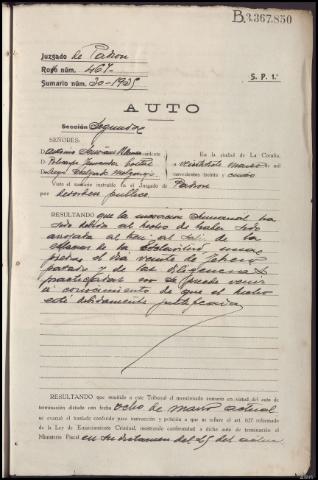 B.3.367.850
Juzgado de Padron
Rollo núm. 467.
Sumario núm. 20-1935
S. P. 1.ª
AUTO
Sección Segunda
SEÑORES:
En la ciudad de La Coruña,
a veintisiete marzo de mil
novecientos treinta y cinco
Visto el sumario instruído en el Juzgado de Padron
por desorden publico
RESULTANDO que la incoacion sumarial ha
sido debida al hecho de haber sido
de la
piedras el dia veinte de febrero
pasado y de las diligencias
practicadas no se puede venir
a conocimiento de que el hecho
esté debidamente justificado
RESULTANDO que remitido a este Tribunal el mencionado sumario en virtud del auto de
terminación dictado con fecha ocho de marzo actual
se evacuó el traslado conferido para instrucción y petición a que se refiere el art. 627 reformado
de la Ley de Enjuiciamiento Criminal, mostrando conformidad a dicho auto de terminación el
Ministerio Fiscal en su dictamen del